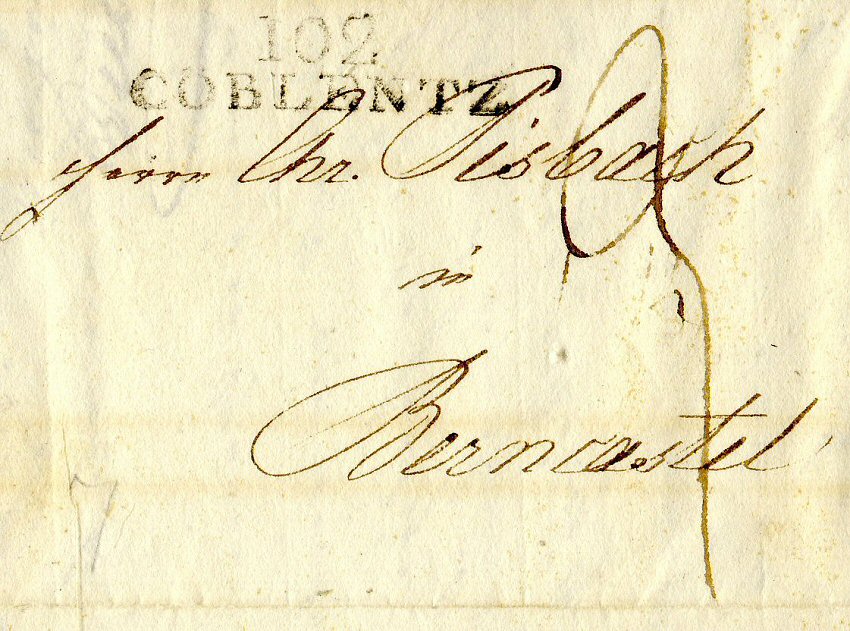 102
COBLENTZ
Herrn Chr. Pisbach
in
Berncastel